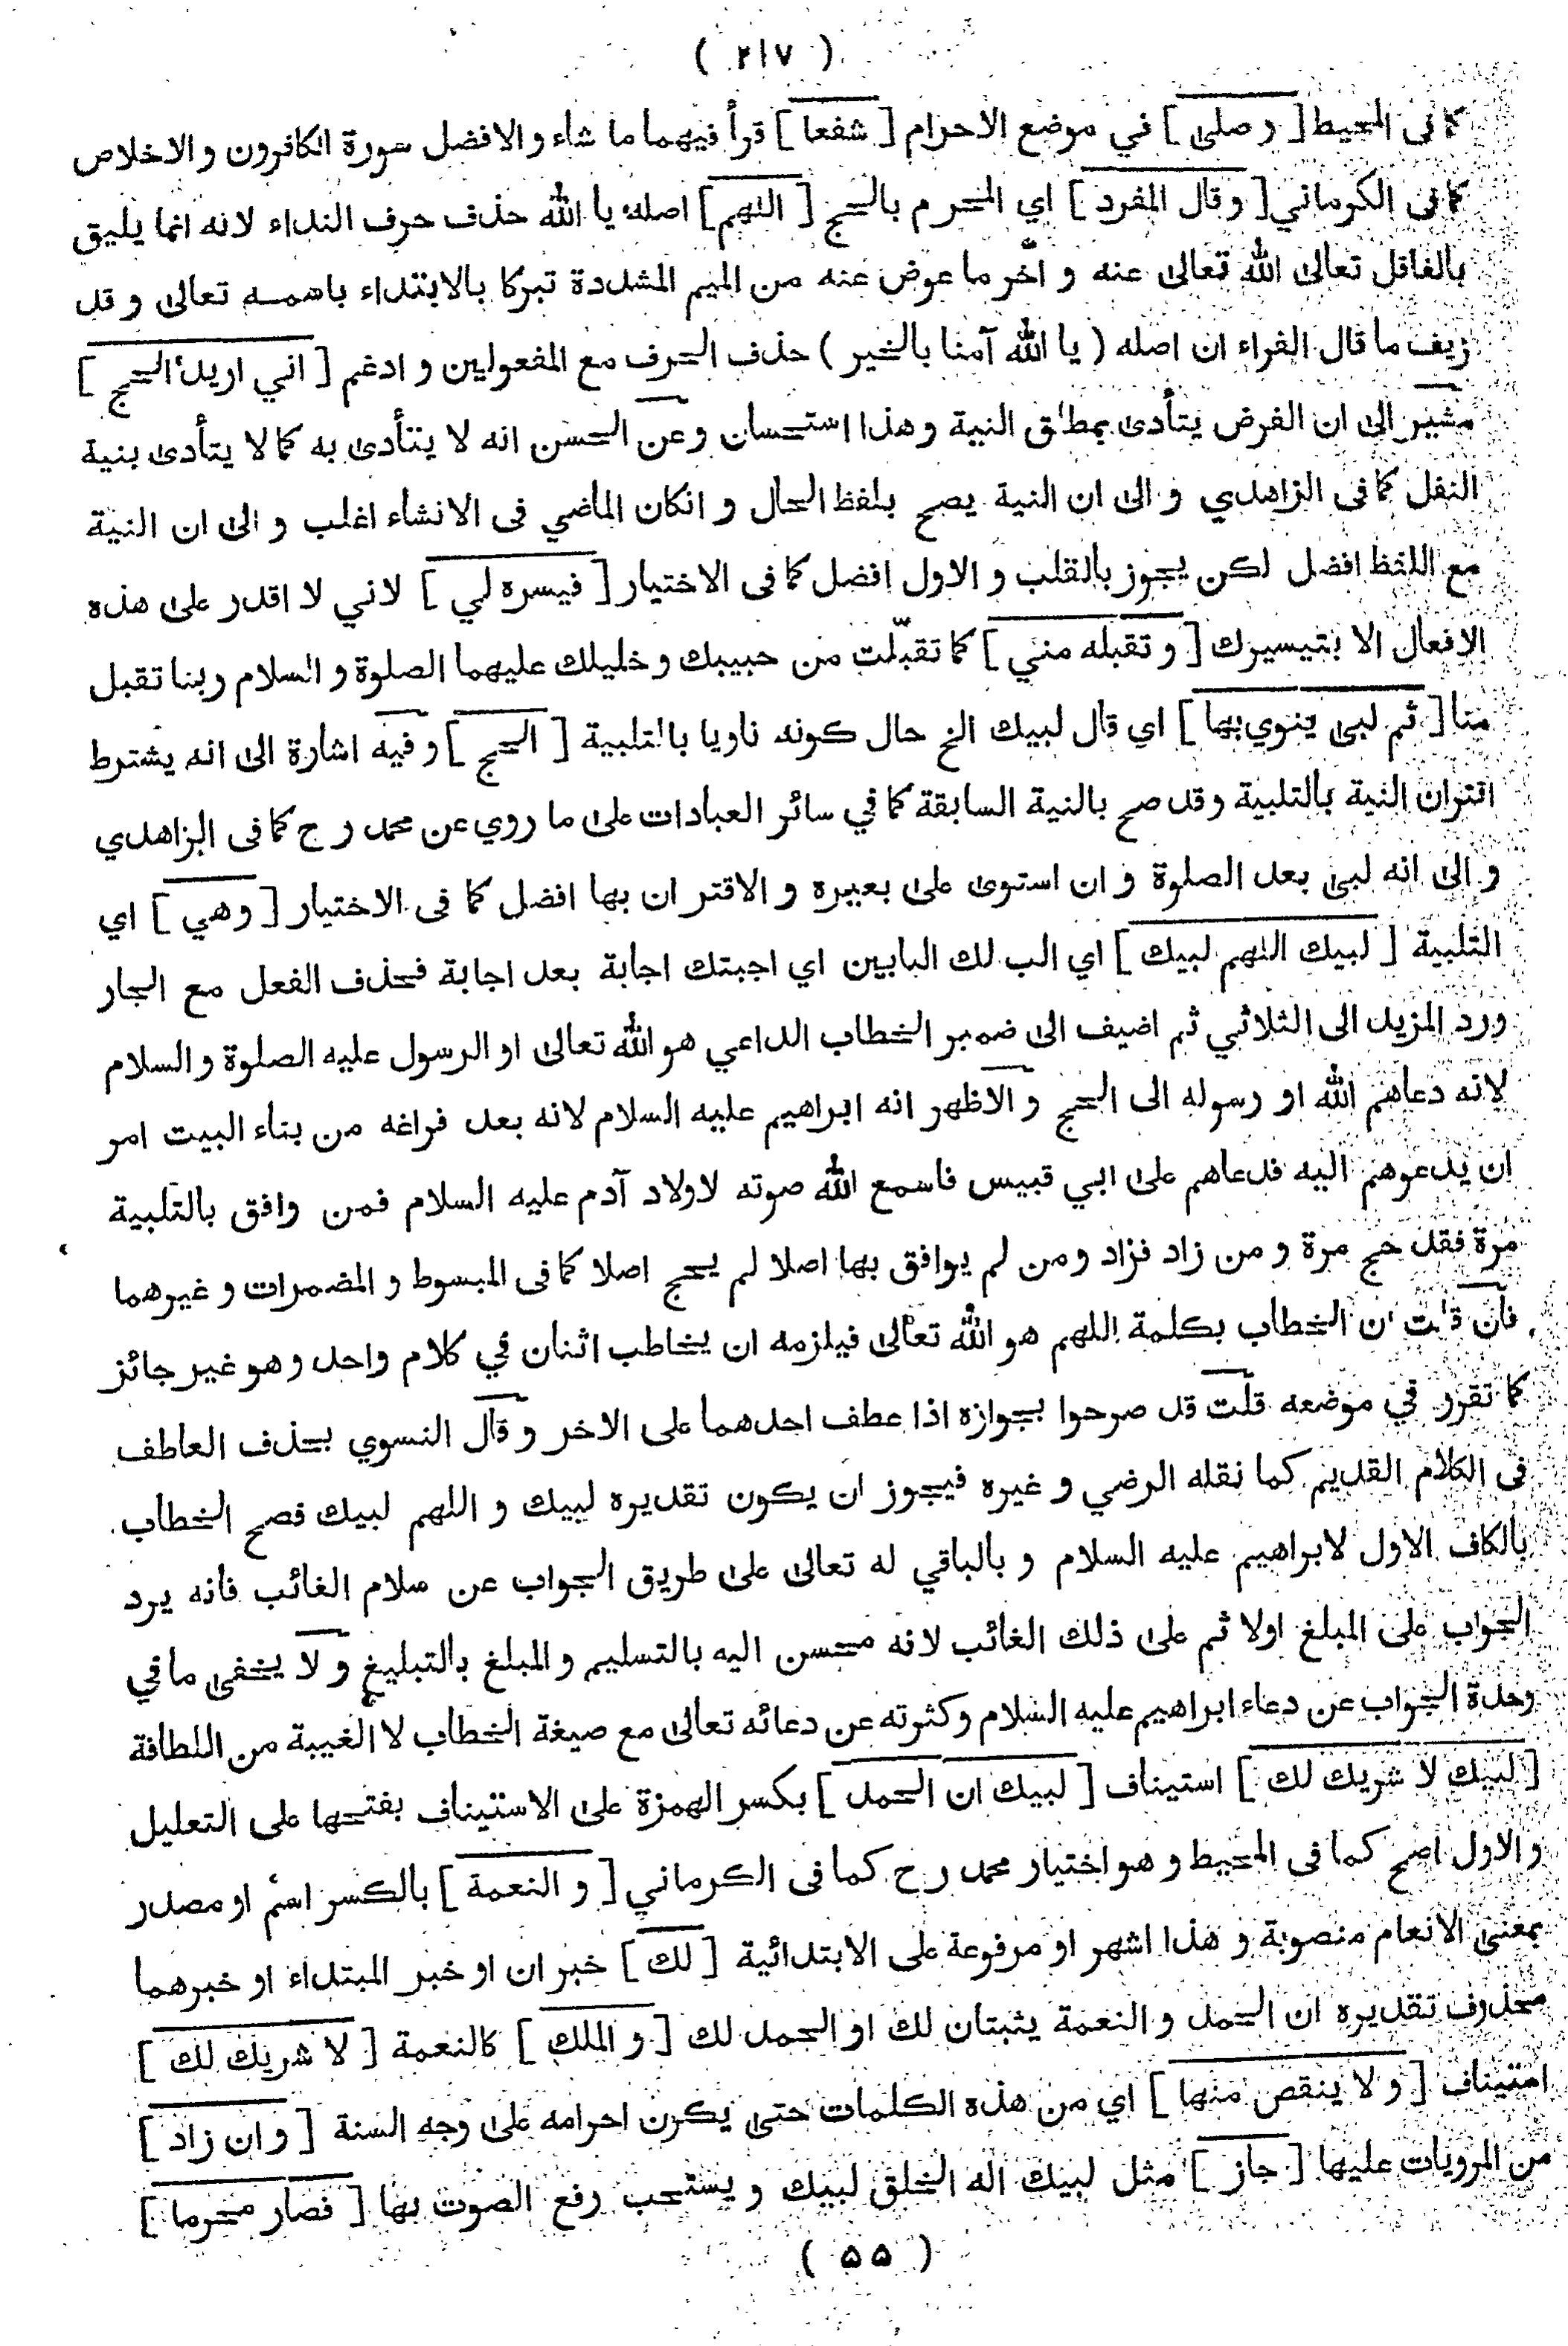 ( ٢١٧ )
كما فى المحيط [ وصلى ] في موضع الاحرام [ شفعا ] قرأ فيهما ما شاء و الافضل سورة الكافرون و الاخلاص
كما فى الكرماني [ وقال المفرد ] اي المحرم بالحج [ اللهم ] اصله يا الله حذف حرف النداء لانه انما يليق
بالغافل تعالى الله تعالى عنه و اخّر ما عوض عنه من الميم المشددة تبركا بالابتداء باسمه تعالى و قد
زيف ما قال الفراء ان اصله ( يا الله آمنا بالخير ) حذف الحرف مع المفعولين و ادغم [ اني اريد الحج ]
مشير الى ان الفرض يتأدى بمطلق النية وهذا استحسان وعن الحسن انه لا يتأدى به كما لا يتأدى بنية
النفل كما فى الزاهدي و الى ان النية يصح بلفظ الحال و انكان الماضي فى الانشاء اغلب و الى ان النية
مع اللفظ افضل لكن يجوز بالقلب و الاول افضل كما فى الاختيار [ فيسره لي ] لاني لا اقدر على هذه
الافعال الا بتيسيرك [ و تقبله مني ] كما تقبّلت من حبيبك و خليلك عليهما الصلوة و السلام ربنا تقبل
منا [ ثم لبى ينوي بها ] اي قال لبيك الخ حال كونه ناويا بالتلبية [ الحج ] و فيه اشارة الى انه يشترط
اقتران النية بالتلبية وقد صح بالنية السابقة كما في سائر العبادات على ما روي عن محمد ر ح كما فى الزاهدي
و الى انه لبى بعد الصلوة و ان استوى على بعيره و الاقتران بها افضل كما فى الاختيار [ وهي ] اي
التلبية [ لبيك اللهم لبيك ] اي الب لك البابين اي اجبتك اجابة بعد اجابة فحذف الفعل مع الجار
ورد المزيد الى الثلاثي ثم اضيف الى ضمير الخطاب الداعي هو الله تعالى او الرسول عليه الصلوة و السلام
لانه دعاهم الله او رسوله الى الحج و الاظهر انه ابراهيم عليه السلام لانه بعد فراغه من بناء البيت امر
ان يدعوهم اليه فدعاهم على ابي قبيس فاسمع الله صوته لاولاد آدم عليه السلام فمن وافق بالتلبية
مرة فقد حج مرة و من زاد فزاد و من لم يوافق بها اصلا لم يحج اصلا كما فى المبسوط و المضمرات و غيرهما
فان قلت ان الخطاب بكلمة اللهم هو الله تعالى فيلزمه ان يخاطب اثنان في كلام واحد وهو غير جائز
كما تقرر في موضعه قلت قد صرحوا بجوازه اذا عطف احدهما على الاخر و قال النسوي بحذف العاطف
فى الكلام القديم كما نقله الرضي و غيره فيجوز ان يكون تقديره لبيك و اللهم لبيك فصح الخطاب
بالكاف الاول لابراهيم عليه السلام و بالباقي له تعالى على طريق الجواب عن سلام الغائب فانه يرد
الجواب على المبلغ اولا ثم على ذلك الغائب لانه محسن اليه بالتسليم و المبلغ بالتبليغ و لا يخفى ما في
وحدة الجواب عن دعاء ابراهيم عليه السلام وكثرته عن دعائه تعالى مع صيغة الخطاب لا الغيبة من اللطافة
[ لبيك لا شريك لك ] استيناف [ لبيك ان الحمد ] بكسر الهمزة على الاستيناف بفتحها على التعليل
و الاول اصح كما فى المحيط و هو اختيار محمد ر ح كما فى الكرماني [ و النعمة ] بالكسر اسم او مصدر
بمعنى الانعام منصوبة و هذا اشهر او مرفوعة على الابتدائية [ لك ] خبر ان او خبر المبتداء او خبرهما
محذوف تقديره ان الحمد و النعمة يثبتان لك او الحمد لك [ و الملك ] كالنعمة [ لا شريك لك ]
استيناف [ و لا ينقص منها ] اي من هذه الكلمات حتى يكون احرامه على وجه السنة [ و ان زاد ]
من المرويات عليها [ جاز ] مثل لبيك اله الخلق لبيك و يستحب رفع الصوت بها [ فصار محرما ]
( ۵۵ )